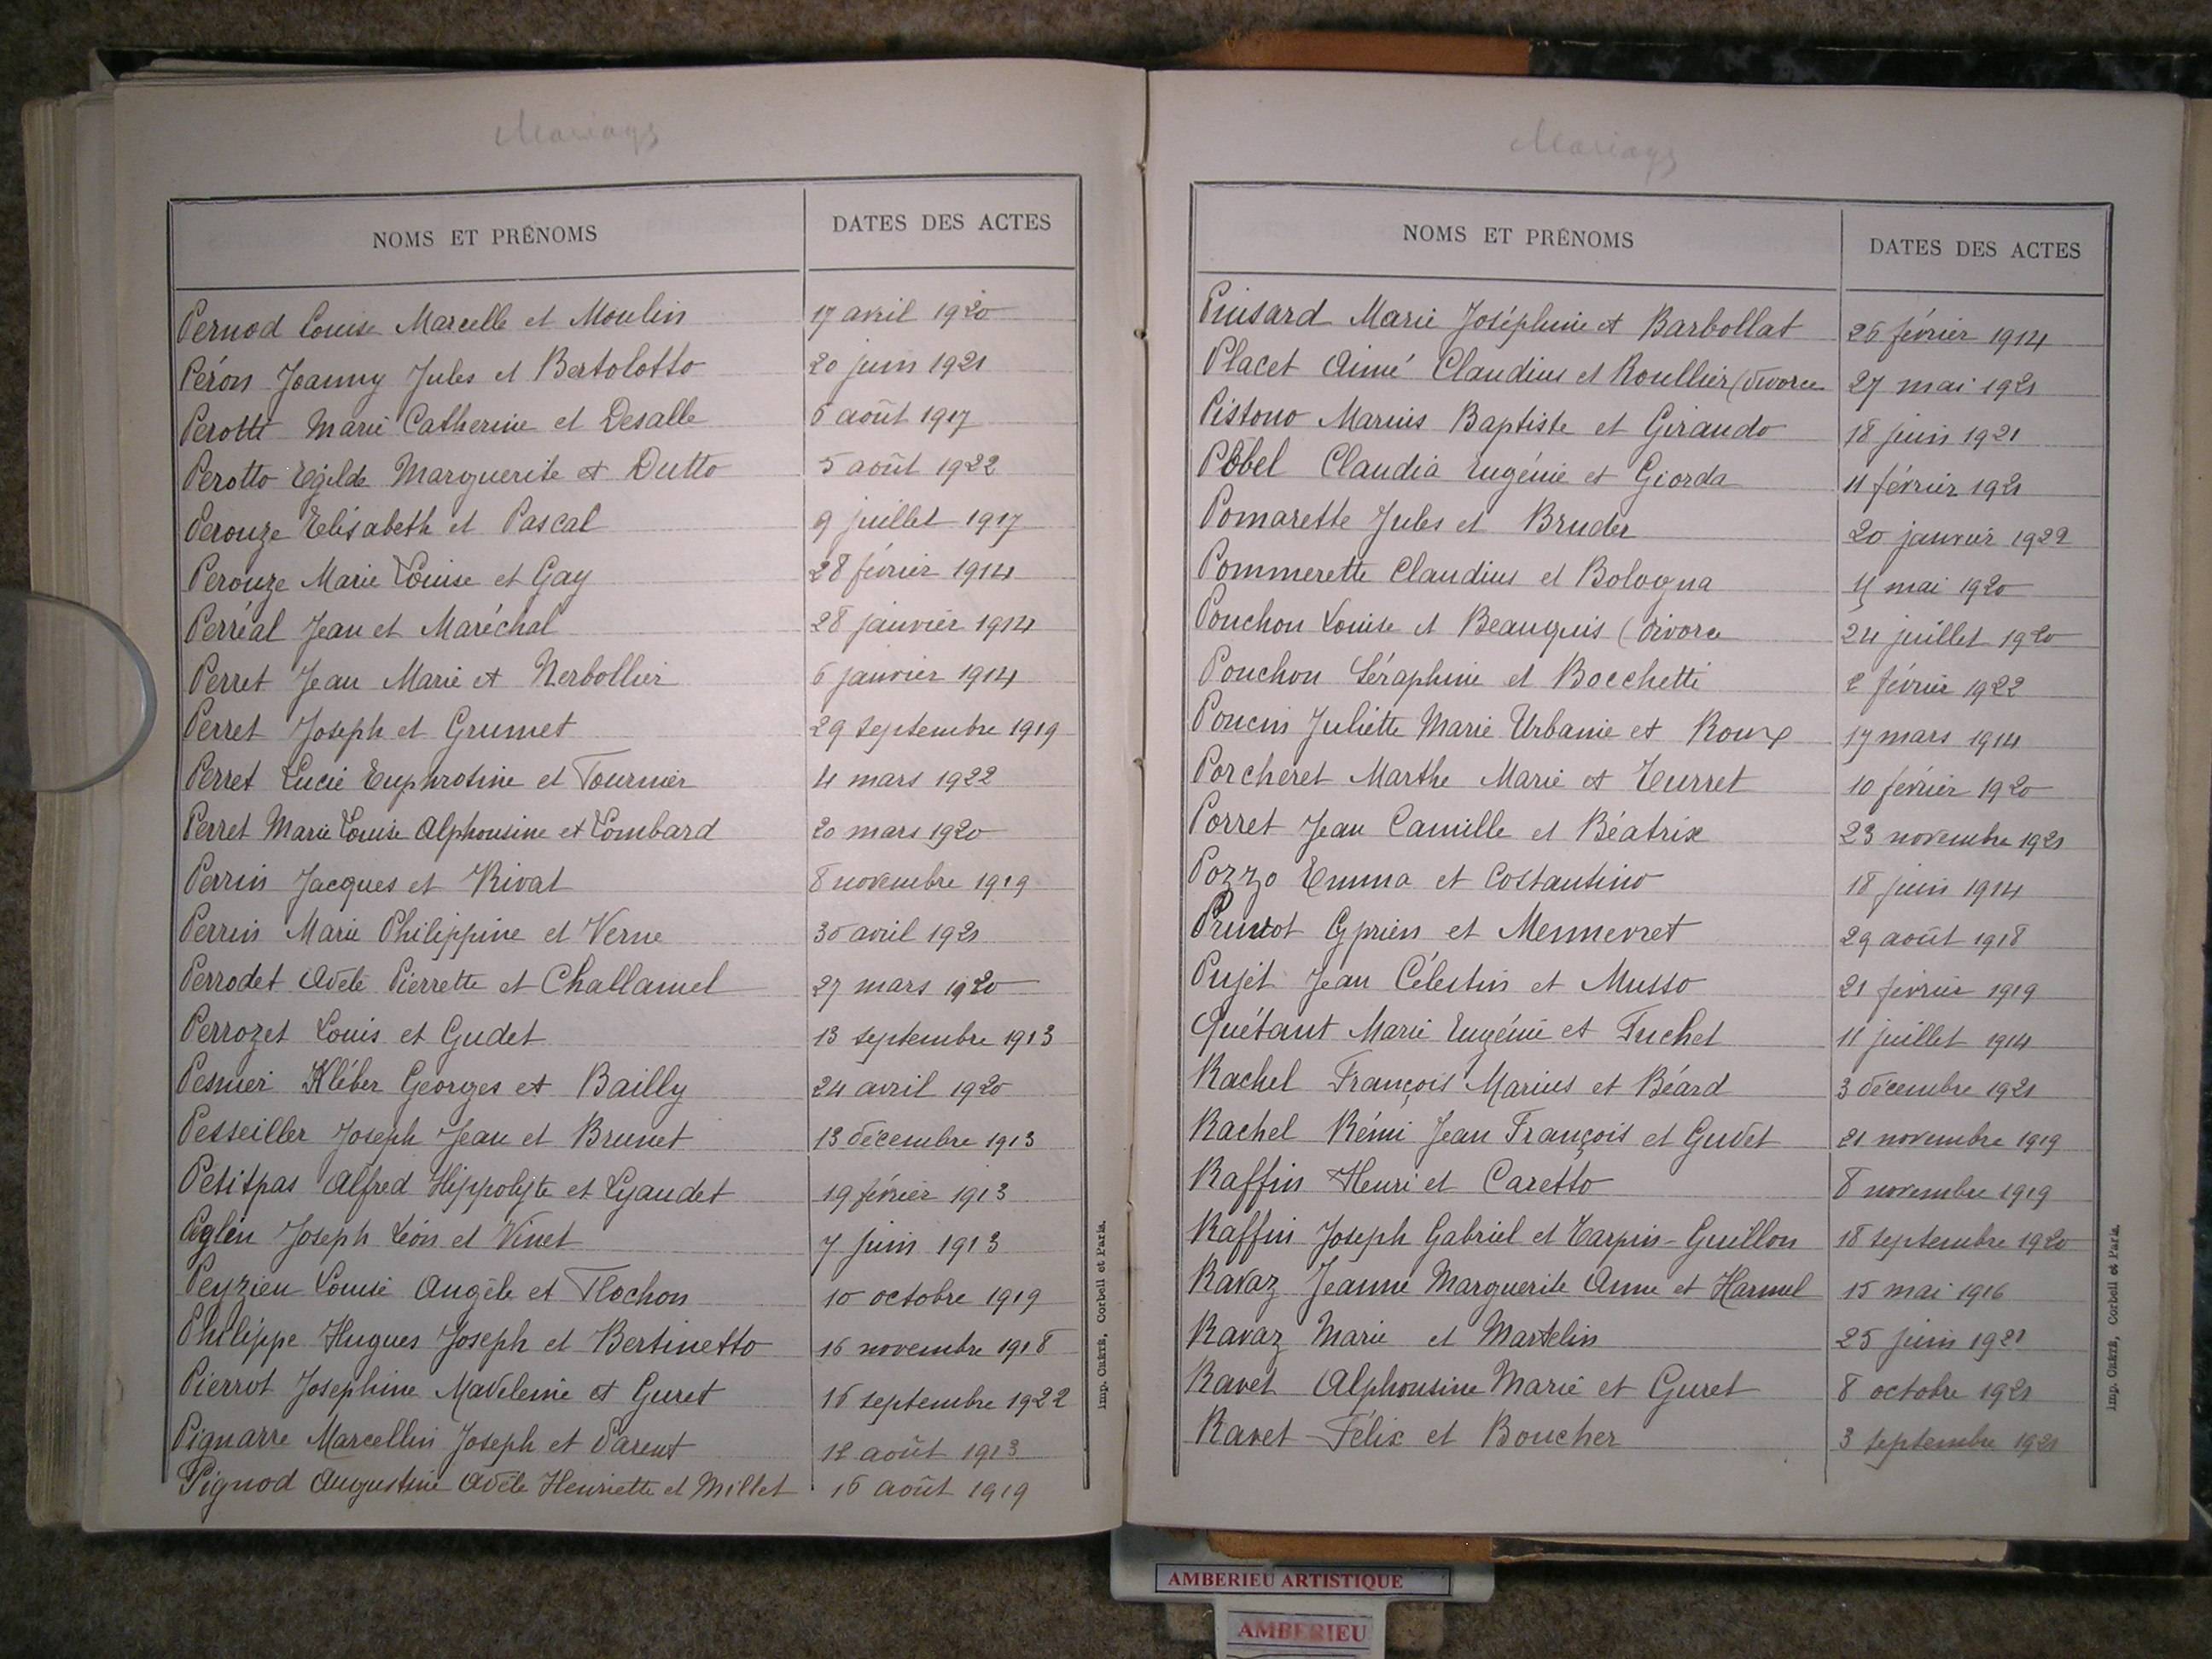 Mariages
NOMS ET PRÉNOMS
DATES DES ACTES
Pernod Louise Marcelle et Moulin 17 avril 1920
Péron Joanny Jules et Bertolotto 20 juin 1921
Perotti Marie Catherine et Desalle 6 août 1917
Perotto Egilde Marguerite et Dutto 5 août 1922
Perouze Elisabeth et Pascal 9 juillet 1917
Perouze Marie Louise et Gay 28 février 1914
Perréal Jean et Maréchal 28 janvier 1914
Perret Jean Marie et Nerbollier 6 janvier 1914
Perret Joseph et Grumet 29 septembre 1919
Perret Lucie Euphrosine et Tournier 4 mars 1922
Perret Marie Louise Alphonsine et Lombard 20 mars 1920
Perrin Jacques et Rivat 8 novembre 1919
Perrin Marie Philippine et Verne 30 avril 1921
Perrodet Adèle Pierrette et Challamel 27 mars 1920
Perrozet Louis et Gudet 13 septembre 1913
Pesmier Kléber Georges et Bailly 24 avril 1920
Pesseiller Joseph Jean et Brunet 13 décembre 1913
Petitpas Alfred Hippolyte et Lyaudet 19 février 1913
Joseph Léon et Vinet 7 juin 1913
Peyzieu Louise Angèle et Flochon 10 octobre 1919
Philippe Hugues Joseph et Bertinetto 16 novembre 1918
Pierrot Josephine Madeleine et Guret 16 septembre 1922
Pignarre Marcellin Joseph et Parent 12 août 1913
Pignod Augustine Adèle Henriette et Millet 16 août 1919
Imp. Corbeil et Paris.
Mariages
NOMS ET PRÉNOMS
DATES DES ACTES
Pinsard Marie Joséphine et Barbollat 26 février 1914
Placet Aimé Claudius et Roullier (divorce 27 mai 1921
Pistono Marius Baptiste et Giraudo 18 juin 1921
Pobel Claudia Eugénie et Giorda 11 février 1921
Pomarette Jules et Bruder 20 janvier 1922
Pommerette Claudius et Bologna mai 1920
Ponchon Louise et Beauquis (divorce 24 juillet 1920
Ponchon Séraphine et Bocchetti 2 février 1922
Poncin Juliette Marie Urbanie et Roux 17 mars 1914
Porcheret Marthe Marie et Eurret 10 février 1920
Porret Jean Camille et Béatrix 23 novembre 1921
Pozzo Emma et Costantino 18 juin 1914
Cyprien et Mennevret 29 août 1918
Pujet Jean Célestin et Musso 21 février 1919
Quétant Marie Eugénie et Tuchet 11 juillet 1914
Rachel François Marius et Béard 3 décembre 1921
Rachel Rémi Jean François et Gudet 21 novembre 1919
Raffin Henri et Caretto 8 novembre 1919
Raffin Joseph Gabriel et Carpin-Guillon 18 septembre 1920
Ravaz Jeanne Marguerite Anne et Harmel 15 mai 1916
Ravaz Marie et Martelin 25 juin 1921
Ravet Alphonsine Marie et Guret 8 octobre 1921
Ravet Félix et Boucher 3 septembre 1921
Imp. Corbeil et Paris.
AMBERIEU ARTISTIQUE
AMBERIEU